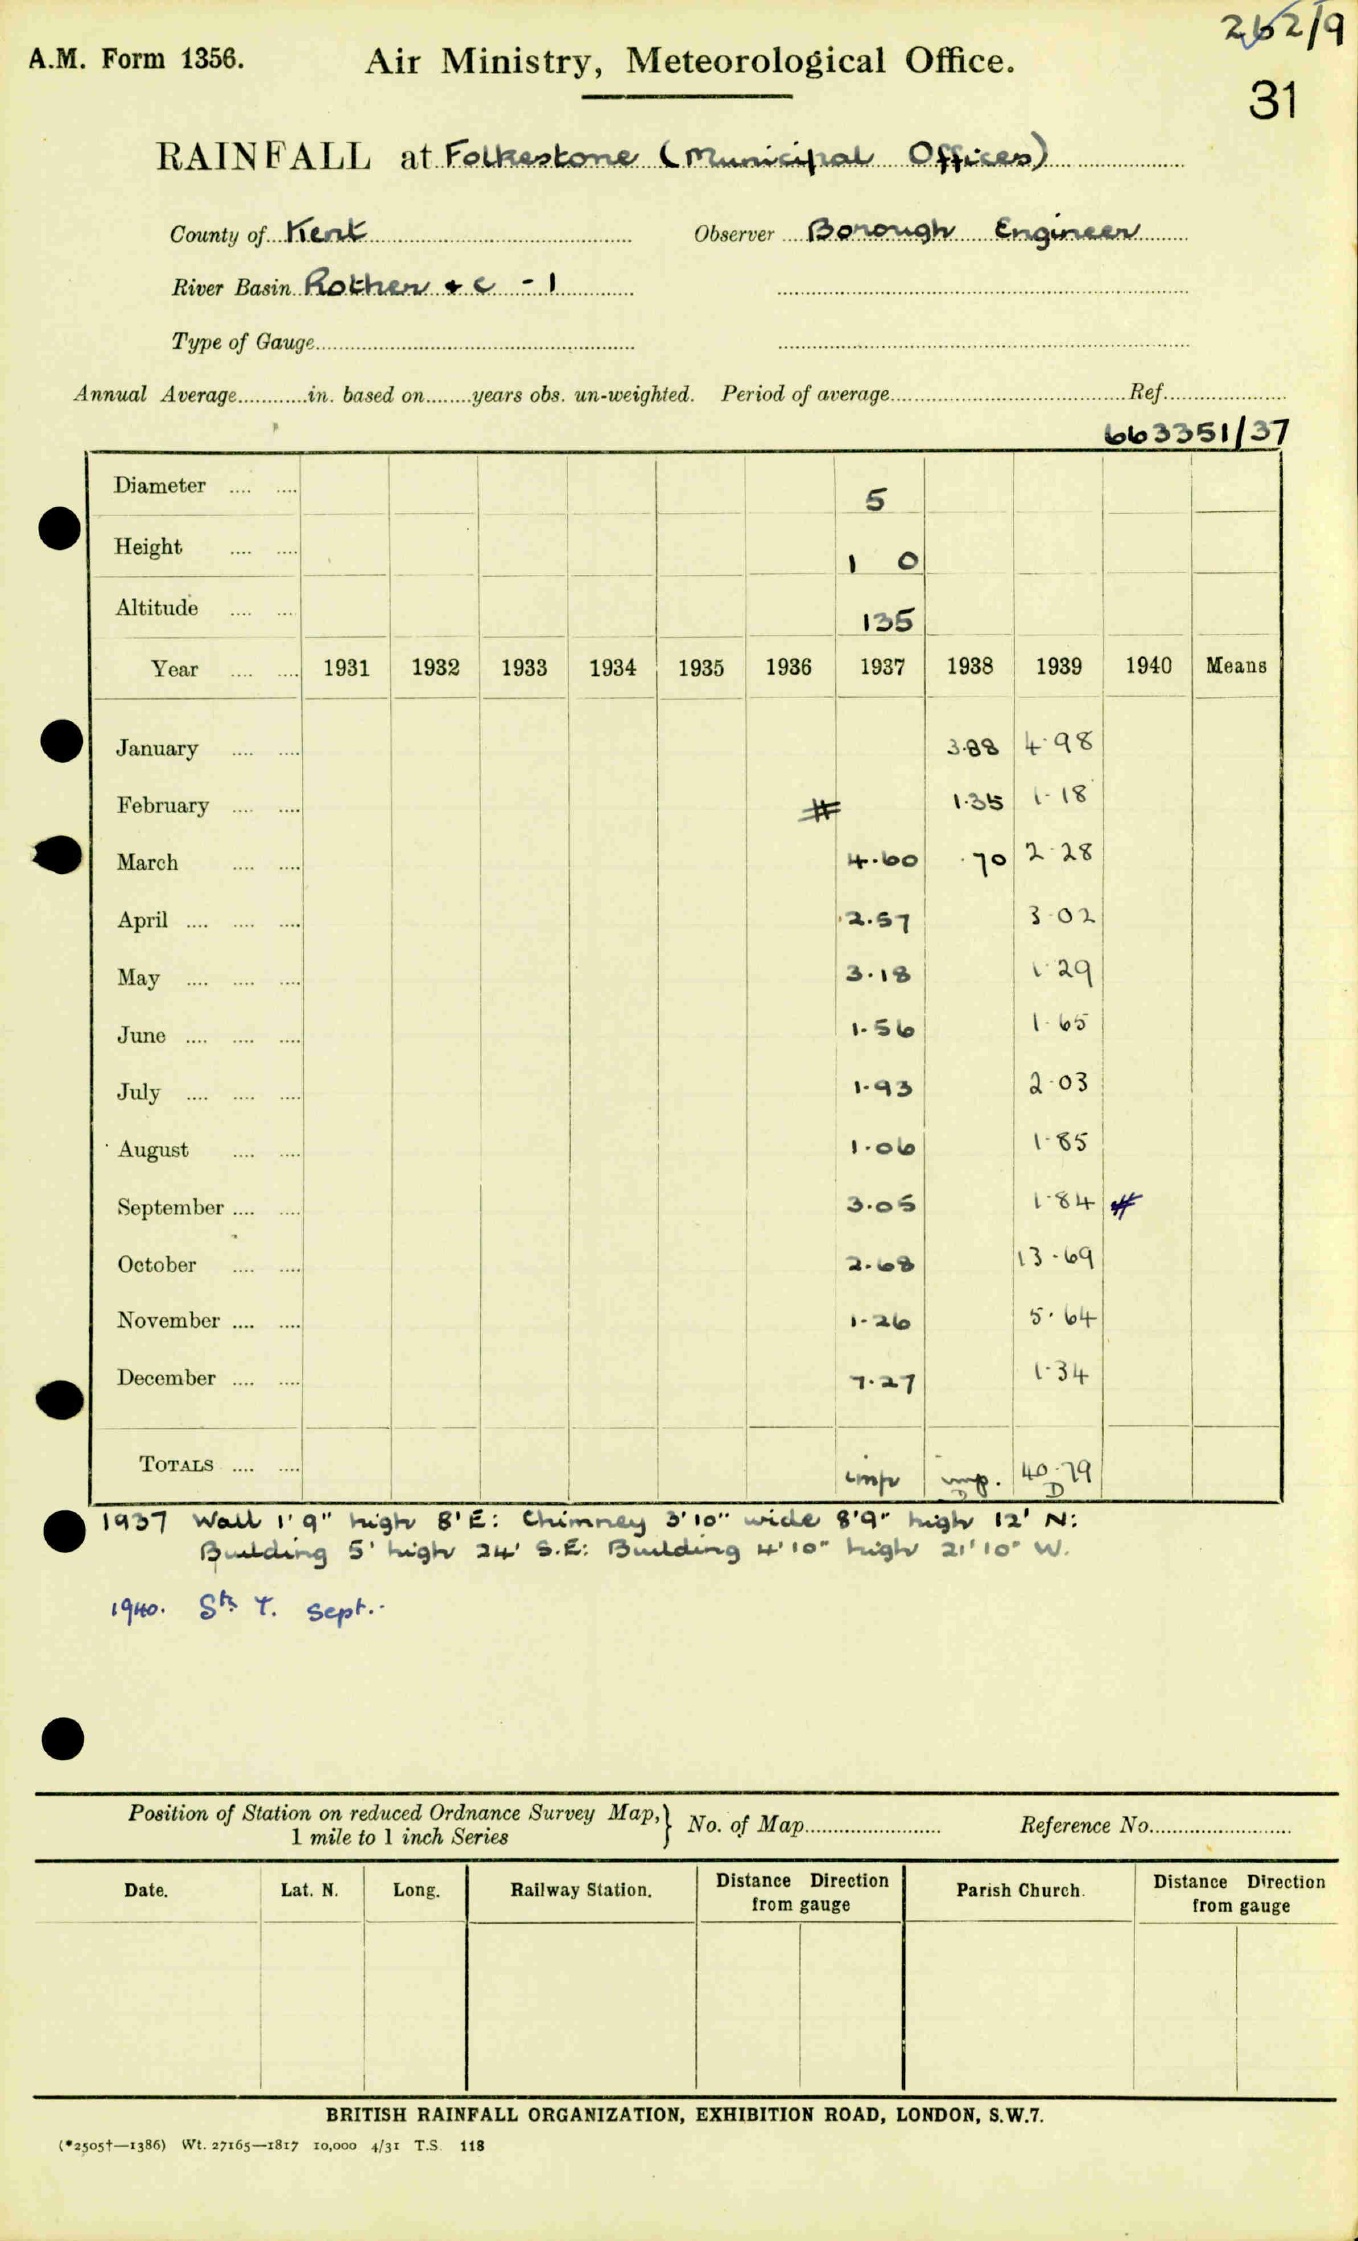 262/9
A.M. Form 1356. Air Ministry, Meteorological Office.
31
RAINFALL at Folkestone (Municipal Offices)
County of Kent Observer Borough Engineer
River Basin Rother & c - 1
Type of Gauge
Annual Average............in. based on........years obs. un-weighted. Period of average........ Ref........
663351/37
Diameter .... .... 5
Height .... .... 1 0
Altitude .... .... 135
Year .... .... 1931 1932 1933 1934 1935 1936 1937 1938 1939 1940 Means
January .... .... 3.88 4.98
February .... .... # 1.35 1.18
March .... .... 4.60 .70 2.28
April .... .... .... 2.57 3.02
May .... .... .... 3.18 1.29
June .... .... .... 1.56 1.65
July .... .... .... 1.93 2.03
August .... .... 1.06 1.85
September .... .... 3.05 1.84 #
October .... .... 2.68 13.69
November .... .... 1.26 5.64
December .... .... 7.27 1.34
TOTALS .... .... imp imp. 40.79
D D
1937 Wall 1' 9" high 8' E: Chimney 3' 10" wide 8' 9" high 12' N:
Building 5' high 24' S.E: Building 4' 10" high 21' 10" W.
1940. St. T. Sept.
Position of Station on reduced Ordnance Survey Map, } No. of Map........ Reference No........
1 mile to 1 inch Series
Date. Lat. N. Long. Railway Station. Distance Direction from gauge Parish Church. Distance Direction from gauge
BRITISH RAINFALL ORGANIZATION, EXHIBITION ROAD, LONDON, S.W.7.
(*2505†—1386) Wt. 27165—1817 10,000 4/31 T.S. 118